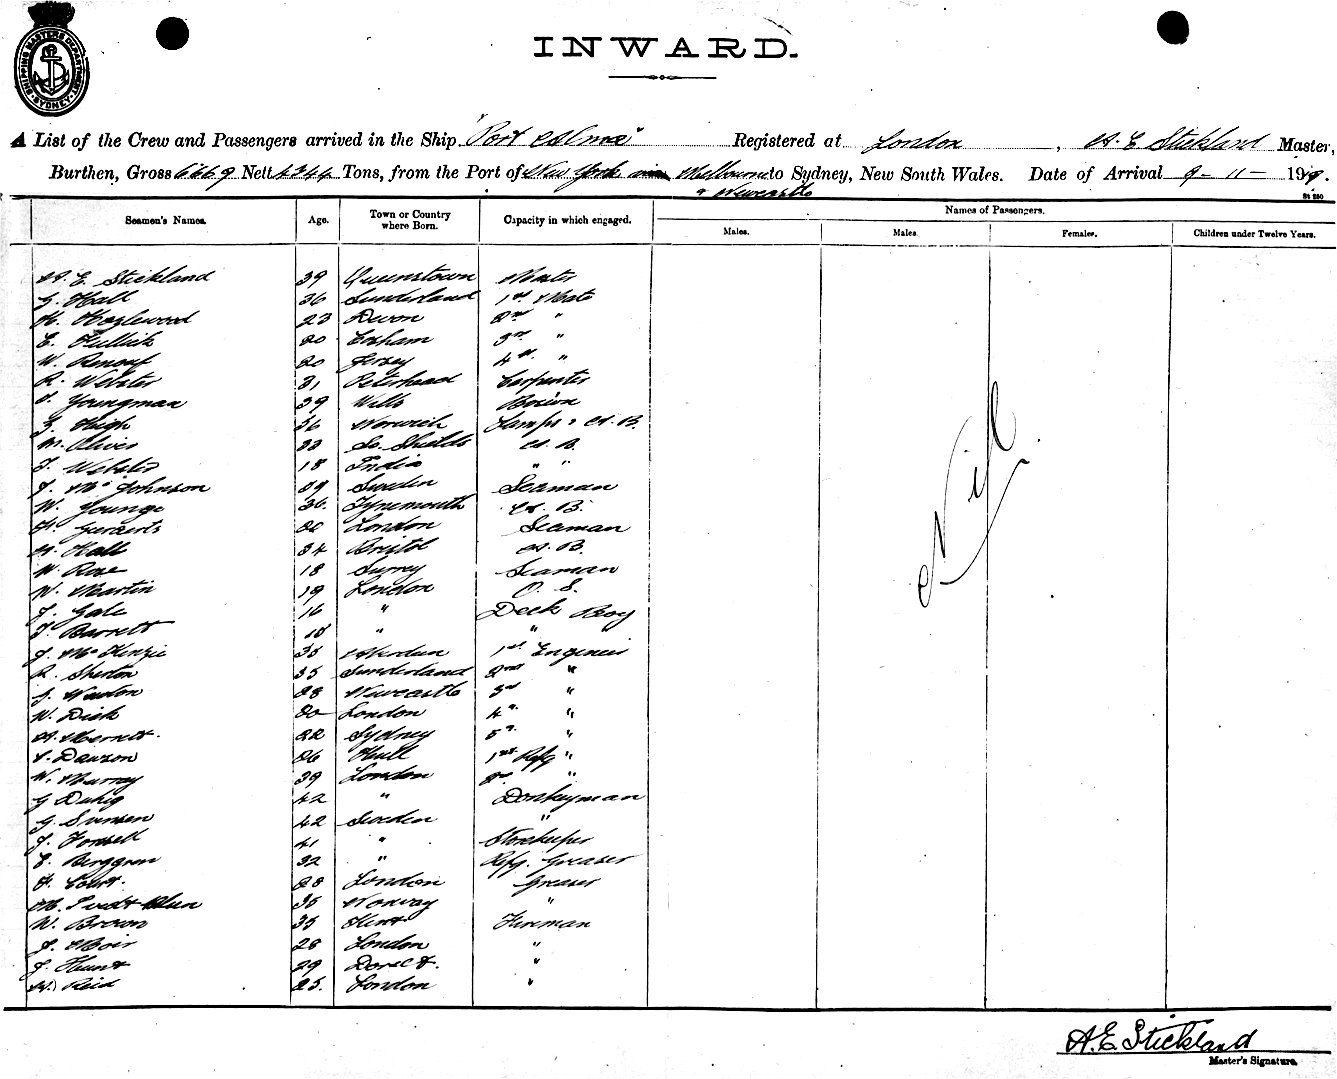 SHIPPING MASTERS DEPARTMENT SYDNEY
INWARD.
A List of the Crew and Passengers arrived in the Ship "Port Alma" Registered at London, A. E. Stickland Master,
Burthen, Gross 6669 Nett 4244 Tons, from the Port of New York Melbourne to Sydney, New South Wales. Date of Arrival 9-11-19
& Newcastle
Names of Passengers.
Seamen's Names. Age. Town or Country where Born. Capacity in which engaged. Males. Males. Females. Children under Twelve Years.
A. E. Stickland 39 Queenstown Master
G. Hall 36 Sunderland 1st Mate
H. Hazlewood 23 Devon 2nd "
E. 20 3rd "
W. Renouf 20 Jersey 4th "
R. Webster 31 Peterhead Carpenter
Youngman 39 Wells Bosun
High 36 Norwich Lamps & A. B.
M. Oliver 33 So. Shields A. B.
J. Webster 18 India " "
J. Mc Johnson 39 Sweden Seaman
W. Younge 36 Tynemouth A. B.
London Seaman
Hall 34 Bristol A. B.
W. Rose 18 Surrey Seaman
W. Martin 19 London O. S.
J. Gale 16 " Deck Boy
J. Barrett 18 " " "
J. McKenzie 35 Aberdeen 1st Engineer
R. 35 Sunderland 2nd "
28 Newcastle 3rd "
W. Dick 20 London 4th "
22 Sydney 5th "
Dawson 26 Hull 1st Refg "
W. Murray 39 London 2nd "
G. 42 " Donkeyman
G. Svensen 42 Sweden "
J. 41 " Storekeeper
E. Berggren 32 " Refg. Greaser
Court. 28 London Greaser
M. 35 Norway "
W. Brown 35 Kent Fireman
J. Moir 28 London "
J. Hunt 29 Dorset. "
W. Reid 25. London "
Nil
A. E. Stickland
Master's Signature.